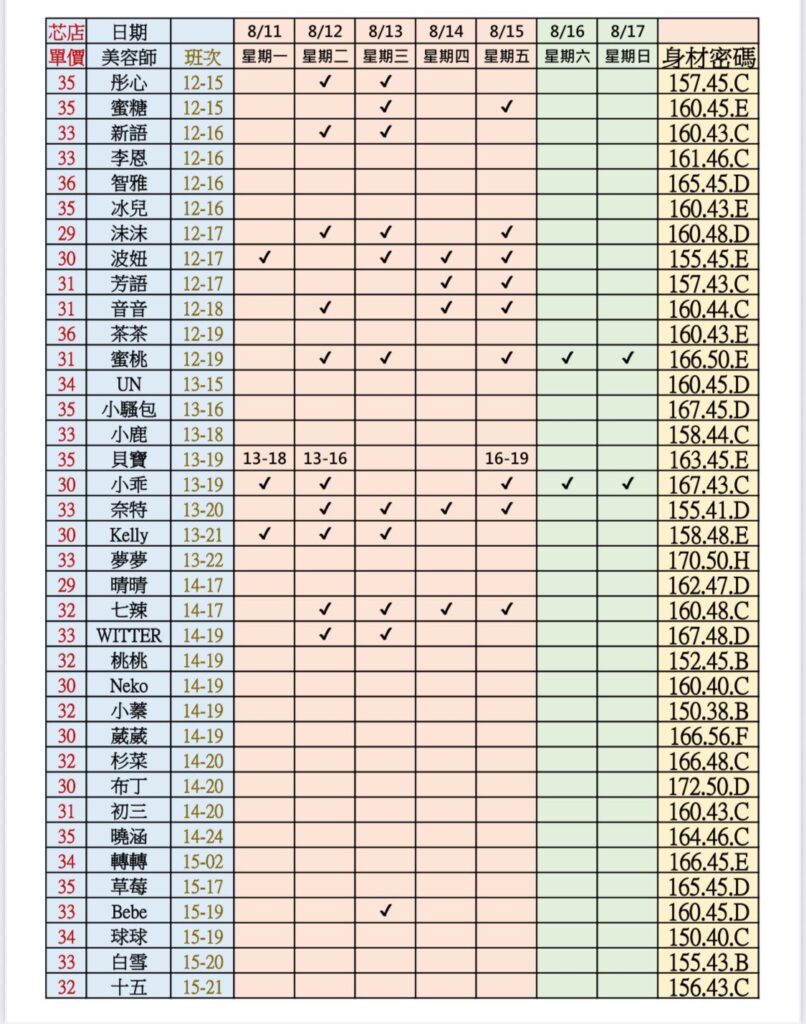 芯店 日期 8/11 8/12 8/13 8/14 8/15 8/16 8/17
單價 美容師 班次 星期一 星期二 星期三 星期四 星期五 星期六 星期日 身材密碼
35 彤心 12-15 ✓ ✓ 157.45.C
35 蜜糖 12-15 ✓ ✓ 160.45.E
33 新語 12-16 ✓ ✓ 160.43.C
33 李恩 12-16 161.46.C
36 智雅 12-16 165.45.D
35 冰兒 12-16 160.43.E
29 沫沫 12-17 ✓ ✓ ✓ 160.48.D
30 波妞 12-17 ✓ ✓ ✓ ✓ 155.45.E
31 芳語 12-17 ✓ ✓ 157.43.C
31 音音 12-18 ✓ ✓ ✓ 160.44.C
36 茶茶 12-19 160.43.E
31 蜜桃 12-19 ✓ ✓ ✓ ✓ ✓ 166.50.E
34 UN 13-15 160.45.D
35 小騷包 13-16 167.45.D
33 小鹿 13-18 158.44.C
35 貝寶 13-19 13-18 13-16 16-19 163.45.E
30 小乖 13-19 ✓ ✓ ✓ ✓ ✓ 167.43.C
33 奈特 13-20 ✓ ✓ ✓ ✓ 155.41.D
30 Kelly 13-21 ✓ ✓ ✓ 158.48.E
33 夢夢 13-22 170.50.H
29 晴晴 14-17 162.47.D
32 七辣 14-17 ✓ ✓ ✓ ✓ 160.48.C
33 WITTER 14-19 ✓ ✓ 167.48.D
32 桃桃 14-19 152.45.B
30 Neko 14-19 160.40.C
32 小蓁 14-19 150.38.B
30 葳葳 14-19 166.56.F
32 杉菜 14-20 166.48.C
30 布丁 14-20 172.50.D
31 初三 14-20 160.43.C
35 曉涵 14-24 164.46.C
34 轉轉 15-02 166.45.E
35 草莓 15-17 165.45.D
33 Bebe 15-19 ✓ 160.45.D
34 球球 15-19 150.40.C
33 白雪 15-20 155.43.B
32 十五 15-21 156.43.C